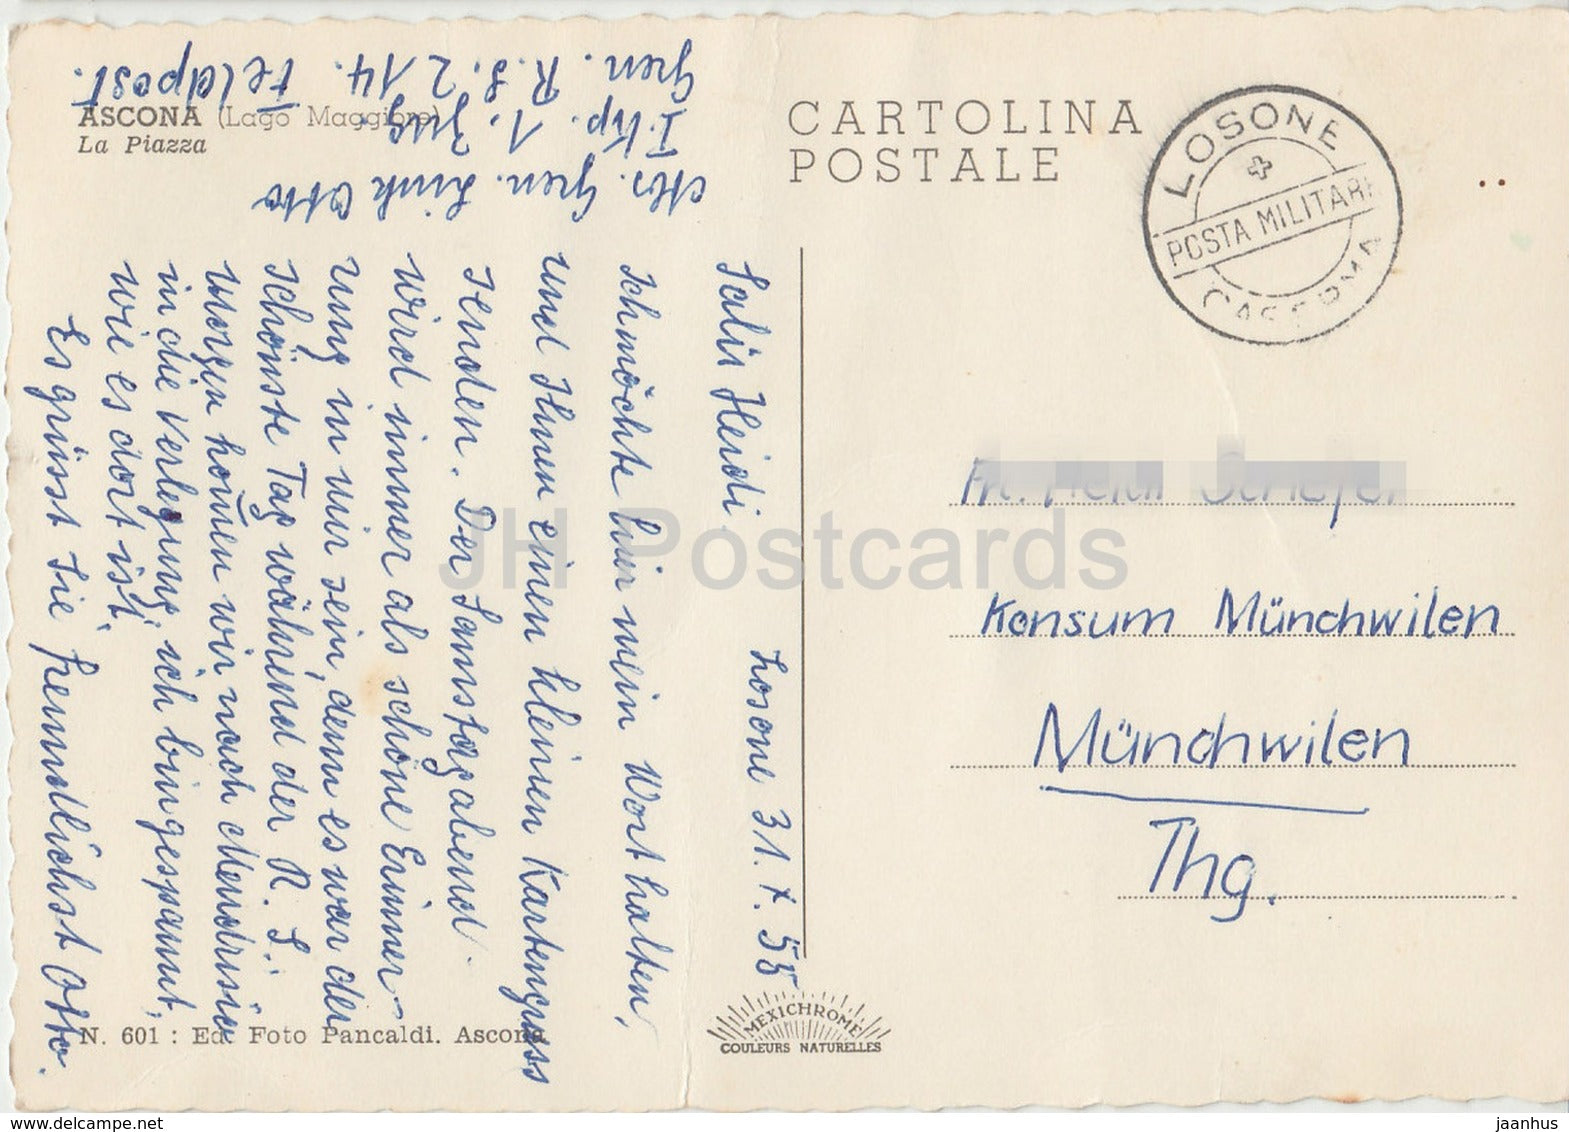 ASCONA (Lago Maggiore)
La Piazza
Gren. R.S. 214. Feldpost.
I. Kp. 1. Zug
Gren. Link Otto
CARTOLINA
POSTALE
LOSONE
POSTA MILITARE
CASERMA
Salü Heidi, Losone 31. X. 58
Ich möchte hier mein Wort halten,
und Ihnen einen kleinen Kartengruss
senden. Der Samstagabend
wird immer als schöne Erinner-
ung in mir sein, denn es war der
schönste Tag während der R. S.
Morgen kommen wir nach Mendrisio
in die Verlegung, ich bin gespannt,
wie es dort ist.
Es grüsst Sie freundlichst Otto.
Konsum Münchwilen
Münchwilen
Thg.
N. 601 : Ed. Foto Pancaldi. Ascona
MEXICHROME
COULEURS NATURELLES
JH Postcards
www.delcampe.net
jaanhus